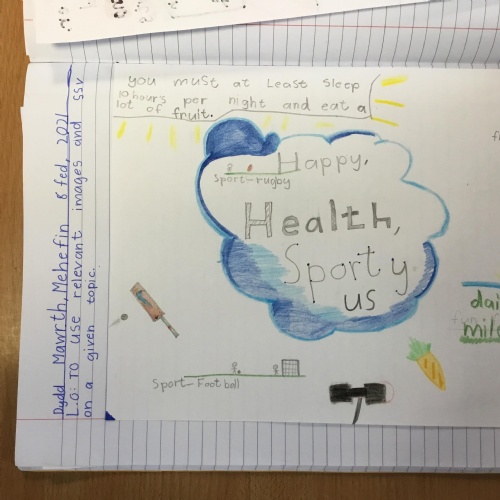 you must at Least Sleep
10 hours per night and eat a
lot of fruit.
Dydd Mawrth, Mehefin 8 fed, 2021
L.O: TO use relevant images and SSV
on a given topic.
Happy,
Sport-rugby
Health,
Sporty
us
Sport-Football
dai
milk